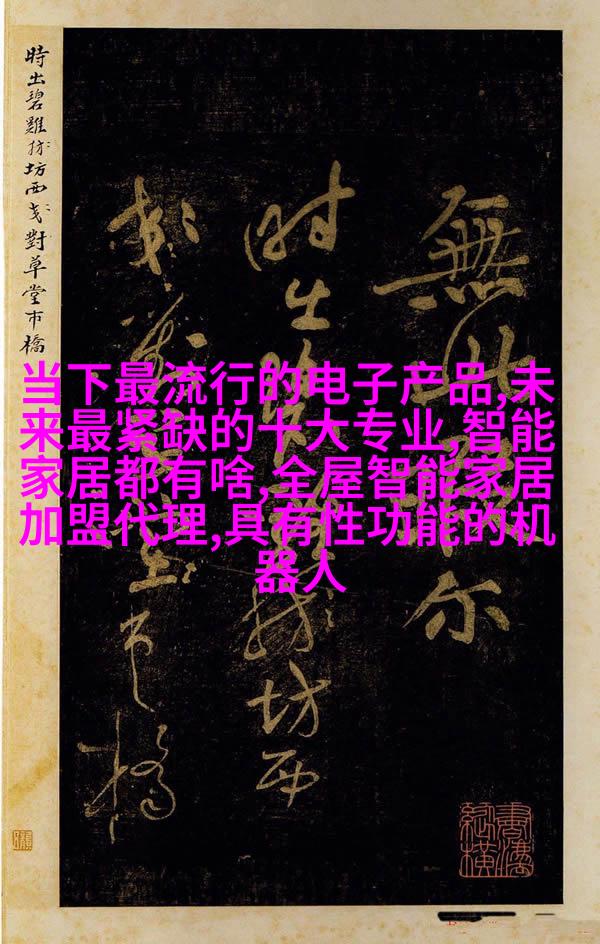 当下最流行的电子产品,未
来最紧缺的十大专业,智能
家居都有啥,全屋智能家居
加盟代理,具有性功能的机
器人
無此 尔
时出 坊西
堂市橋
時出碧雞坊西對草堂市橋